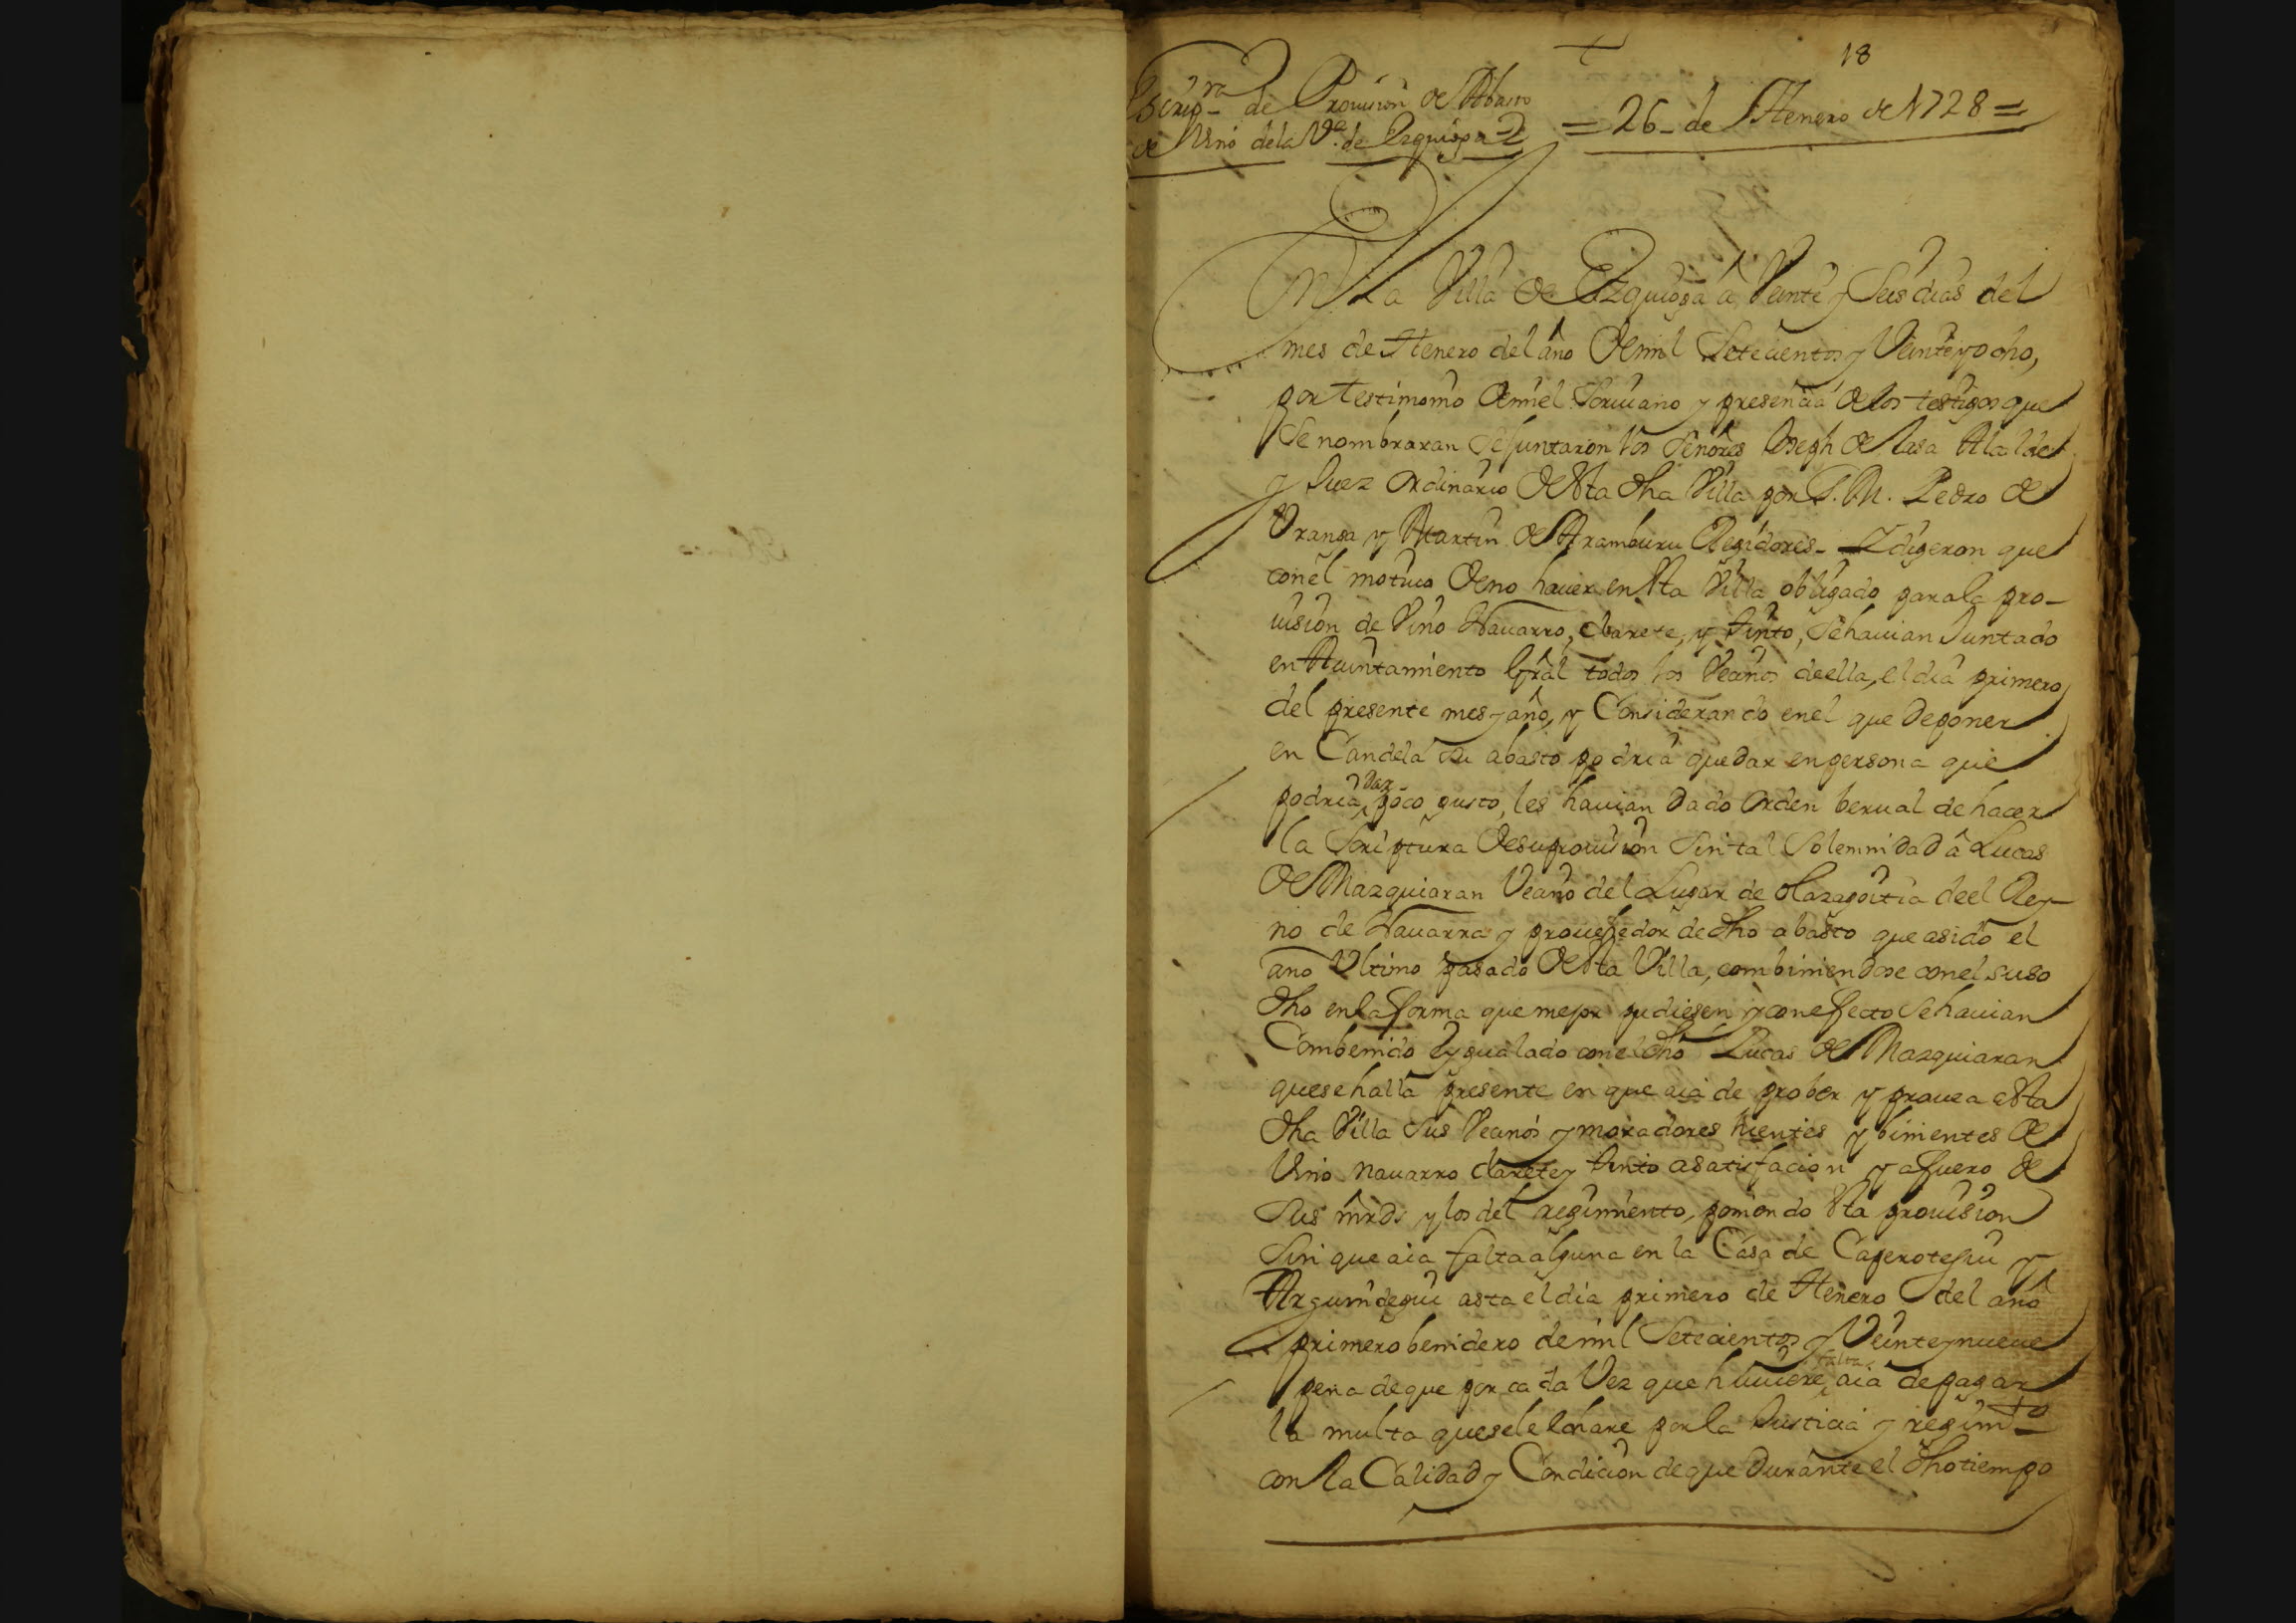 18
Escrip.ra de Prouision de Abasto
de Vino dela V.a de Ezquioga
= 26 de Henero de 1728 =
En La Villa de Ezquioga â Veinte y Seis dias del
mes de Henero del año de mil Setecientos y Veinte y ocho,
por testimonio de mi el Scriuano y presencia de los testigos que
Se nombraran Se juntaron los Señores Joseph de Lasa Alcalde
y Juez ordinario de esta dha Villa por S. M. Pedro de
Vranga y Martin de Aramburu Regidores - Y digeron que
con el motiuo de no hauer en esta Villa obligado para la pro-
uision de Vino Nauarro, clarete, y tinto, Se hauian Juntado
en Aiuntamiento Gral todos los Vecinos de ella, el dia primero
del presente mes y año, y Considerando en el que de poner
en Candela su abasto podria quedar en persona que
podria dar poco gusto, les hauian dado orden berual de hacer
la Scriptura de su prouision Sin tal Solemnidad â Lucas
de Mazquiaran Vecino del Lugar de Olazagoitia de el Rey-
no de Nauarra y prouehedor de dho abasto que a sido el
año Vltimo pasado de esta Villa, combiniendose con el suso
dho en la forma que mejor pudiesen y con efecto Se hauian
Combenido E ygualado con el dho Lucas de Mazquiaran
que se halla presente en que aia de prober y prouea esta
dha Villa Sus Vecinos y moradores hientes y binientes de
Vino nauarro clarete y tinto a satisfacion y a fuero de
Sus mrds y los del regimiento, poniendo esta prouision
Sin que aia falta alguna en la Casa de Caperotegui y
Argurindegui asta el dia primero de Henero del año
primero benidero de mil Setecientos y Veinte y nueue
pena de que por cada Vez que huuiere falta aia de pagar
la multa que se le echare por la Justicia y regim.to
con la Calidad y Condicion de que durante el dho tiempo